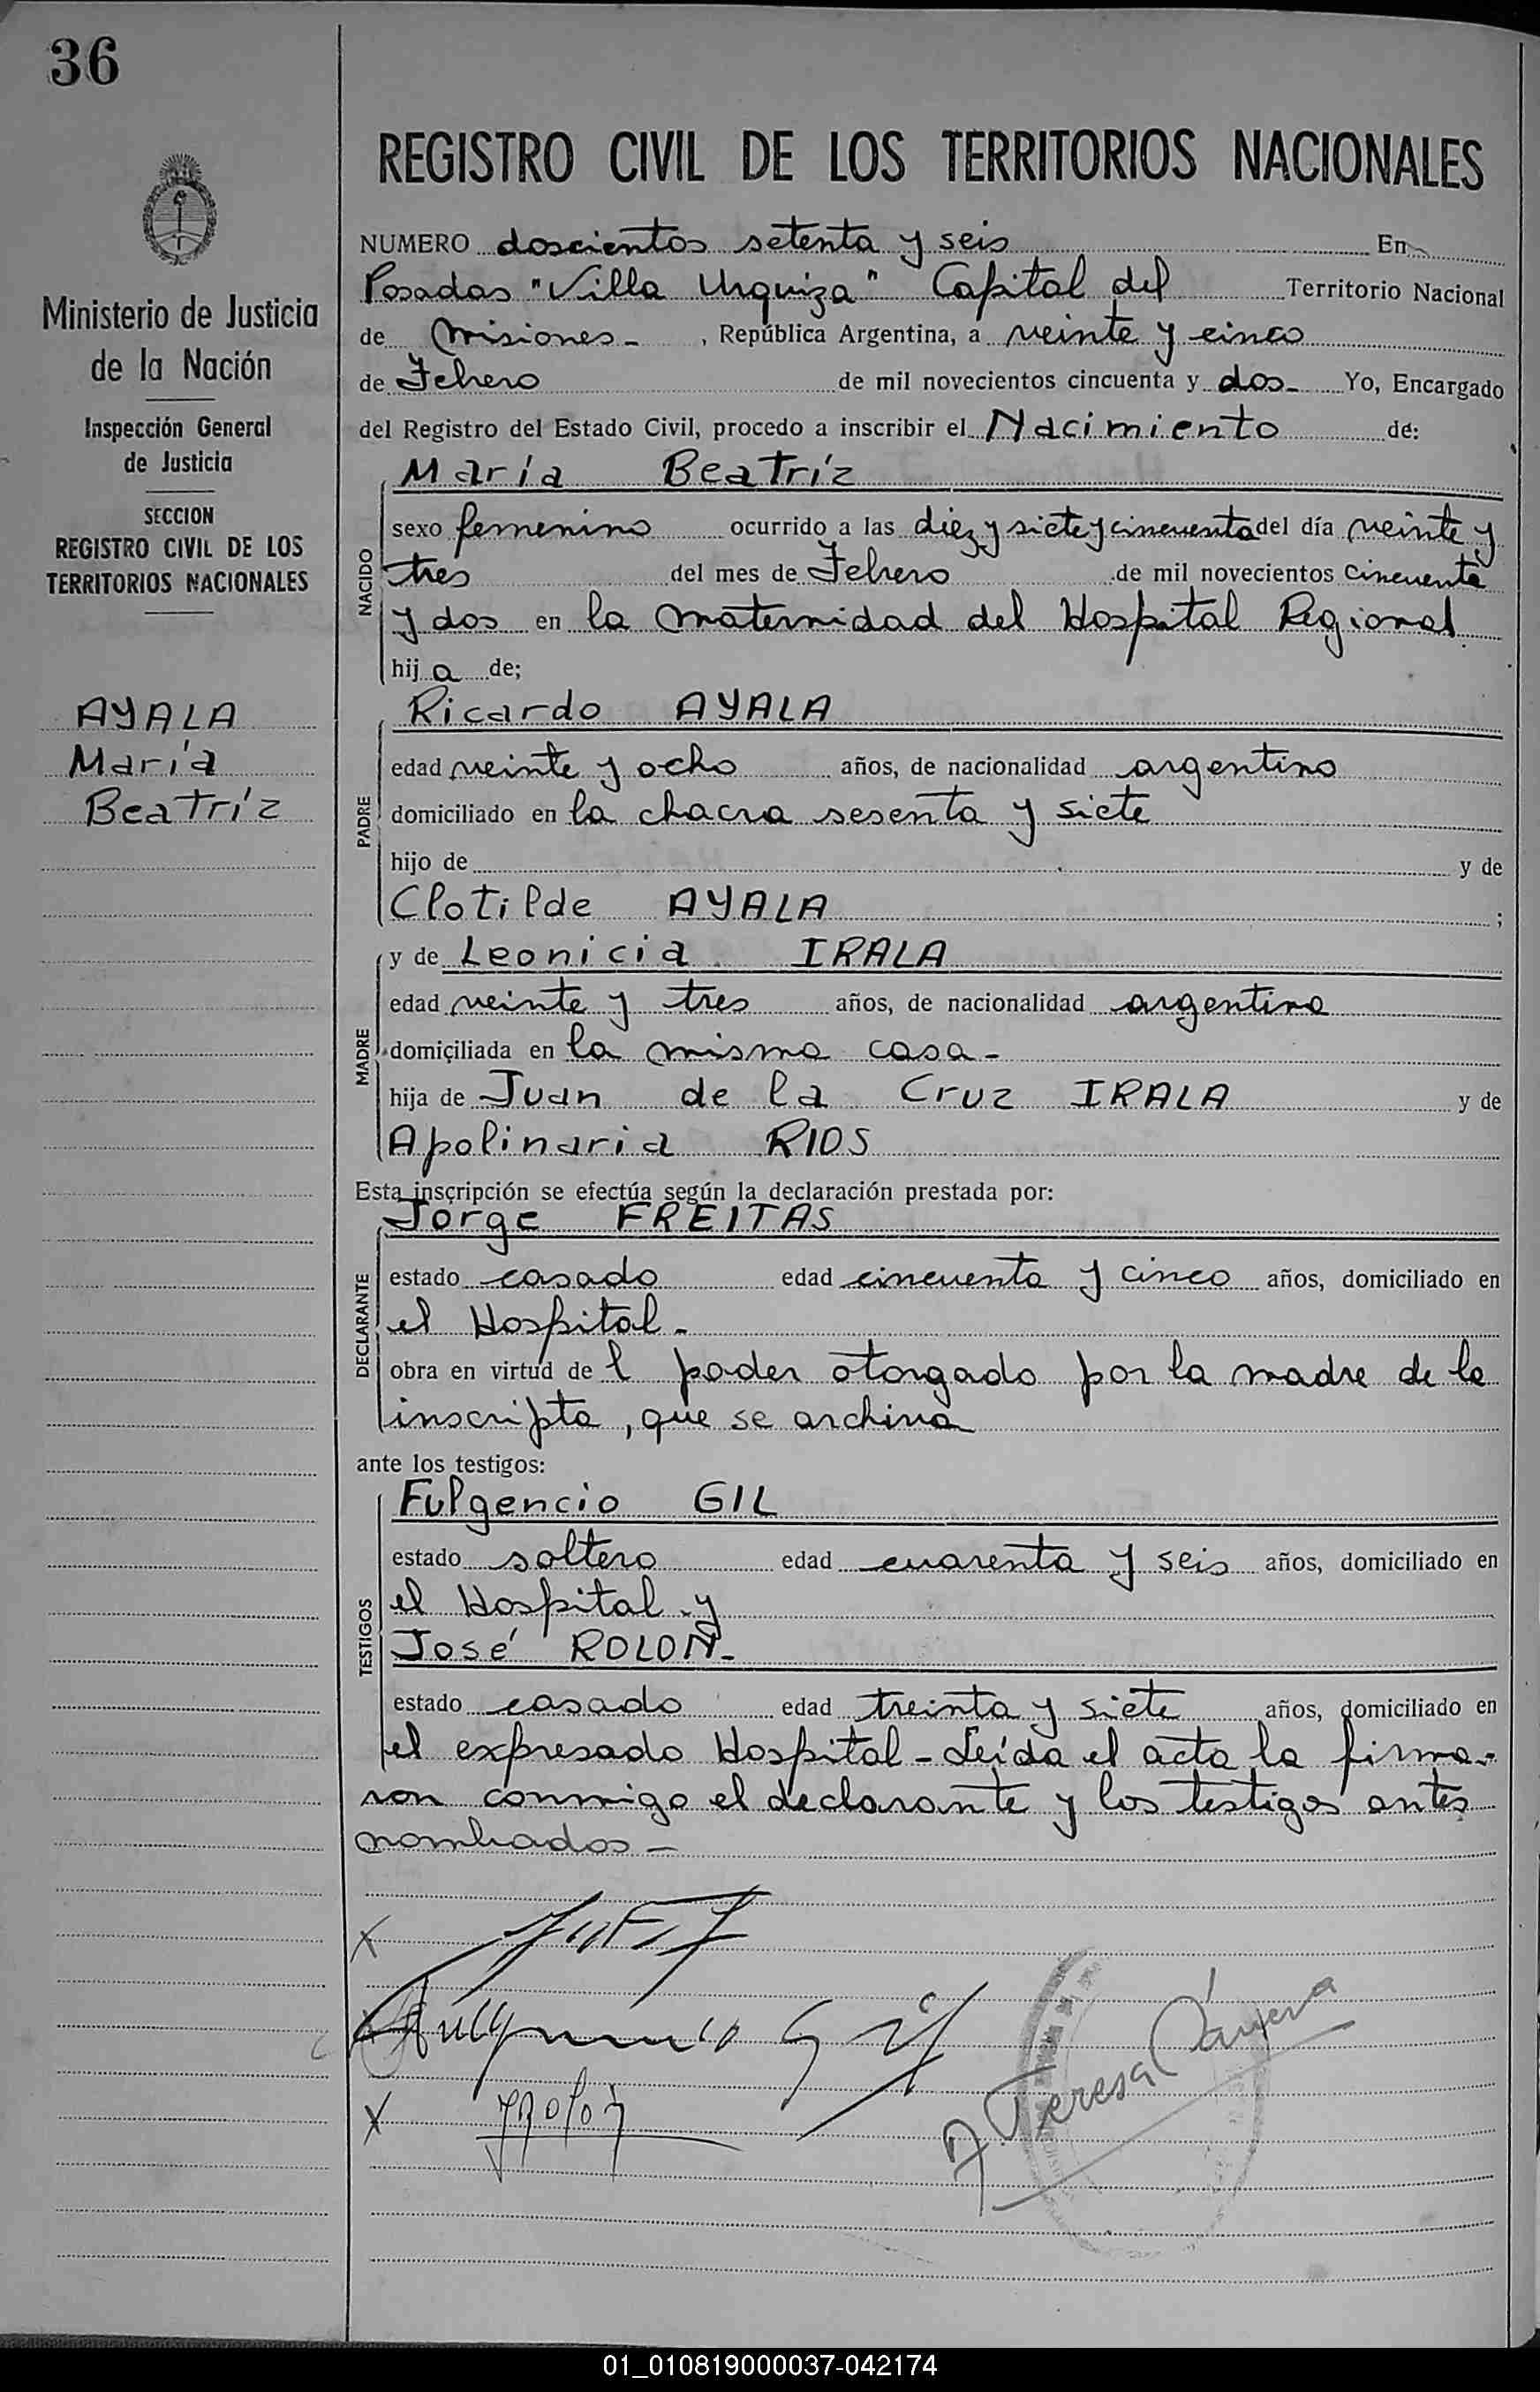 36
REGISTRO CIVIL DE LOS TERRITORIOS NACIONALES
Ministerio de Justicia
de la Nación
Inspección General
de Justicia
SECCION
REGISTRO CIVIL DE LOS
TERRITORIOS NACIONALES
AYALA
María
Beatríz
NUMERO doscientos setenta y seis En
Posadas "Villa Urquiza" Capital del Territorio Nacional
de Misiones - , República Argentina, a veinte y cinco
de Febrero de mil novecientos cincuenta y dos - Yo, Encargado
del Registro del Estado Civil, procedo a inscribir el Nacimiento de:
NACIDO
María Beatríz
sexo femenino ocurrido a las diez y siete y cincuenta del día veinte y
tres del mes de Febrero de mil novecientos cincuenta
y dos en la maternidad del Hospital Regional
hij a de;
PADRE
Ricardo AYALA
edad veinte y ocho años, de nacionalidad argentino
domiciliado en la chacra sesenta y siete
hijo de y de
Clotilde AYALA ;
MADRE
y de Leonicia IRALA
edad veinte y tres años, de nacionalidad argentina
domiciliada en la misma casa -
hija de Juan de la Cruz IRALA y de
Apolinaria RIOS
Esta inscripción se efectúa según la declaración prestada por:
DECLARANTE
Jorge FREITAS
estado casado edad cincuenta y cinco años, domiciliado en
el Hospital -
obra en virtud de l poder otorgado por la madre de la
inscripta, que se archiva
ante los testigos:
TESTIGOS
Fulgencio GIL
estado soltero edad cuarenta y seis años, domiciliado en
el Hospital y
José ROLON -
estado casado edad treinta y siete años, domiciliado en
el expresado Hospital - Leída el acta la firma-
ron conmigo el declarante y los testigos antes
nombrados -
X
Fulgencio Gil
X JRolón
A Teresa
01_010819000037-042174